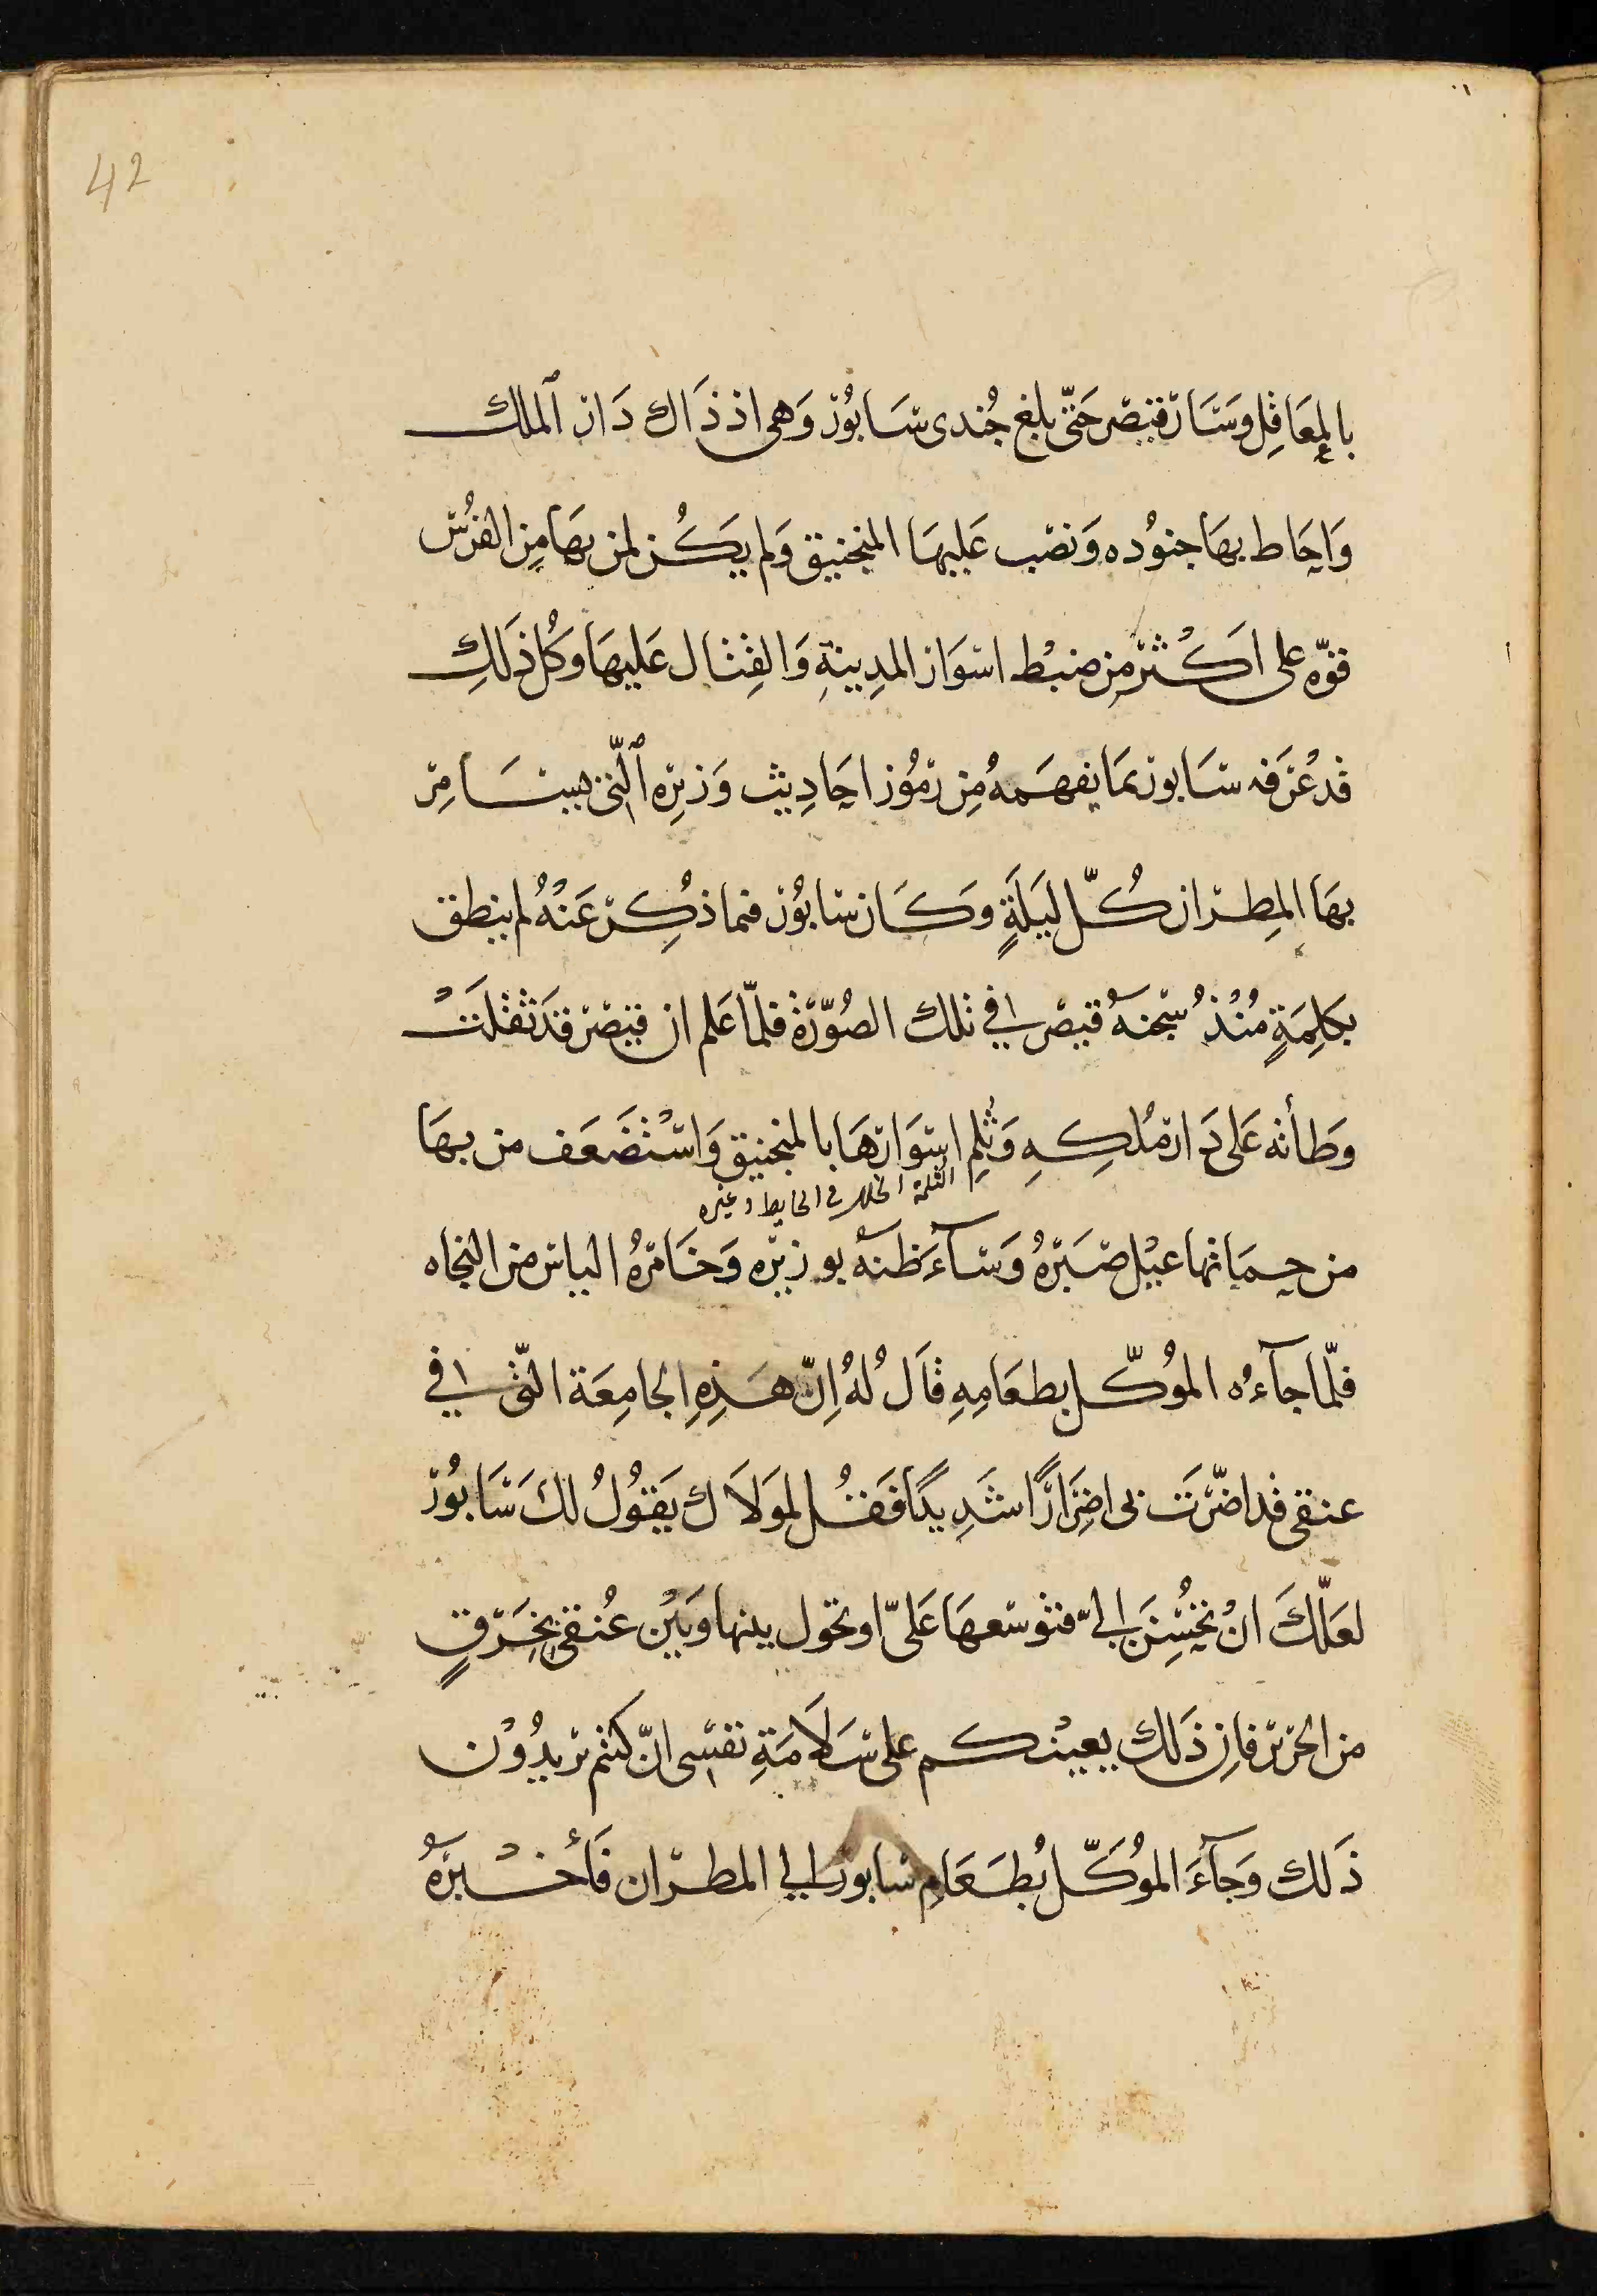 42
بالمِعَاقِل وَسَارَ قيصر حَتّى بلغ جُندى سَابُور وَهى اذ ذَاك دَار ٱلملك
وَاحَاط بهَا جنوُده وَنصَب عَليهَا المنجنيق وَلم يَكُن لمن بهَا مِن الفُرْس
قوّه على اَكْثَر مِن ضبْط اسْوَار المدِينةِ وَالقِتَال عَليهَا وَكُل ذَلِك
قد عُرَفه سَابور بمَا يفهَمهُ مِن رمُوُز احَادِيث وَزيرِه ٱلّتى يسَامِر
بهَا المِطرَان كُلّ لَيَلَةٍ وَكَان سَابُور فيما ذُكِر عَنْهُ لم ينطق
بكلِمَةٍ مُنْذُ سَجنهُ قيصر فى تلك الصُوّرَة فلمّا عَلم ان قيصَر قد ثقُلَتْ
وَطأته عَلى دَار مُلكِهِ وَثُلِم اسْوَارهَا بالمنجنيق وَاسْتضَعَف من بهَا
الثلمة الخلل فى الحايط وغيره
من حِمَاتها عيْل صَبَرُهُ وَسَآءَ ظنهُ بوزيره وَخَامَرهُ الياس من النجاه
فلمّا جآءُه الموُكّل بطعَامِهِ قَال لهُ اِنّ هَذِهِ الجامِعَة التّى فى
عنقى قد اضرّتَ بى اضِرَارًا شَدِيدًا فَقُل لموَلاَك يَقوُلُ لكَ سَابُور
لعَلّكَ انْ تحُسِنَ الىّ فتوسعهَا عَلىّ او تحول بينها وَبَيْن عُنقى بِخِرَقٍ
من الحرير فاِن ذَلك يعينكم على سَلاَمَةِ نفسِى انّ كنتم تريدُوْن
ذَلك وَجَآءَ الموُكّل بُطعَامِ سَابور الى المطرَان فَأخْبَرَهُ